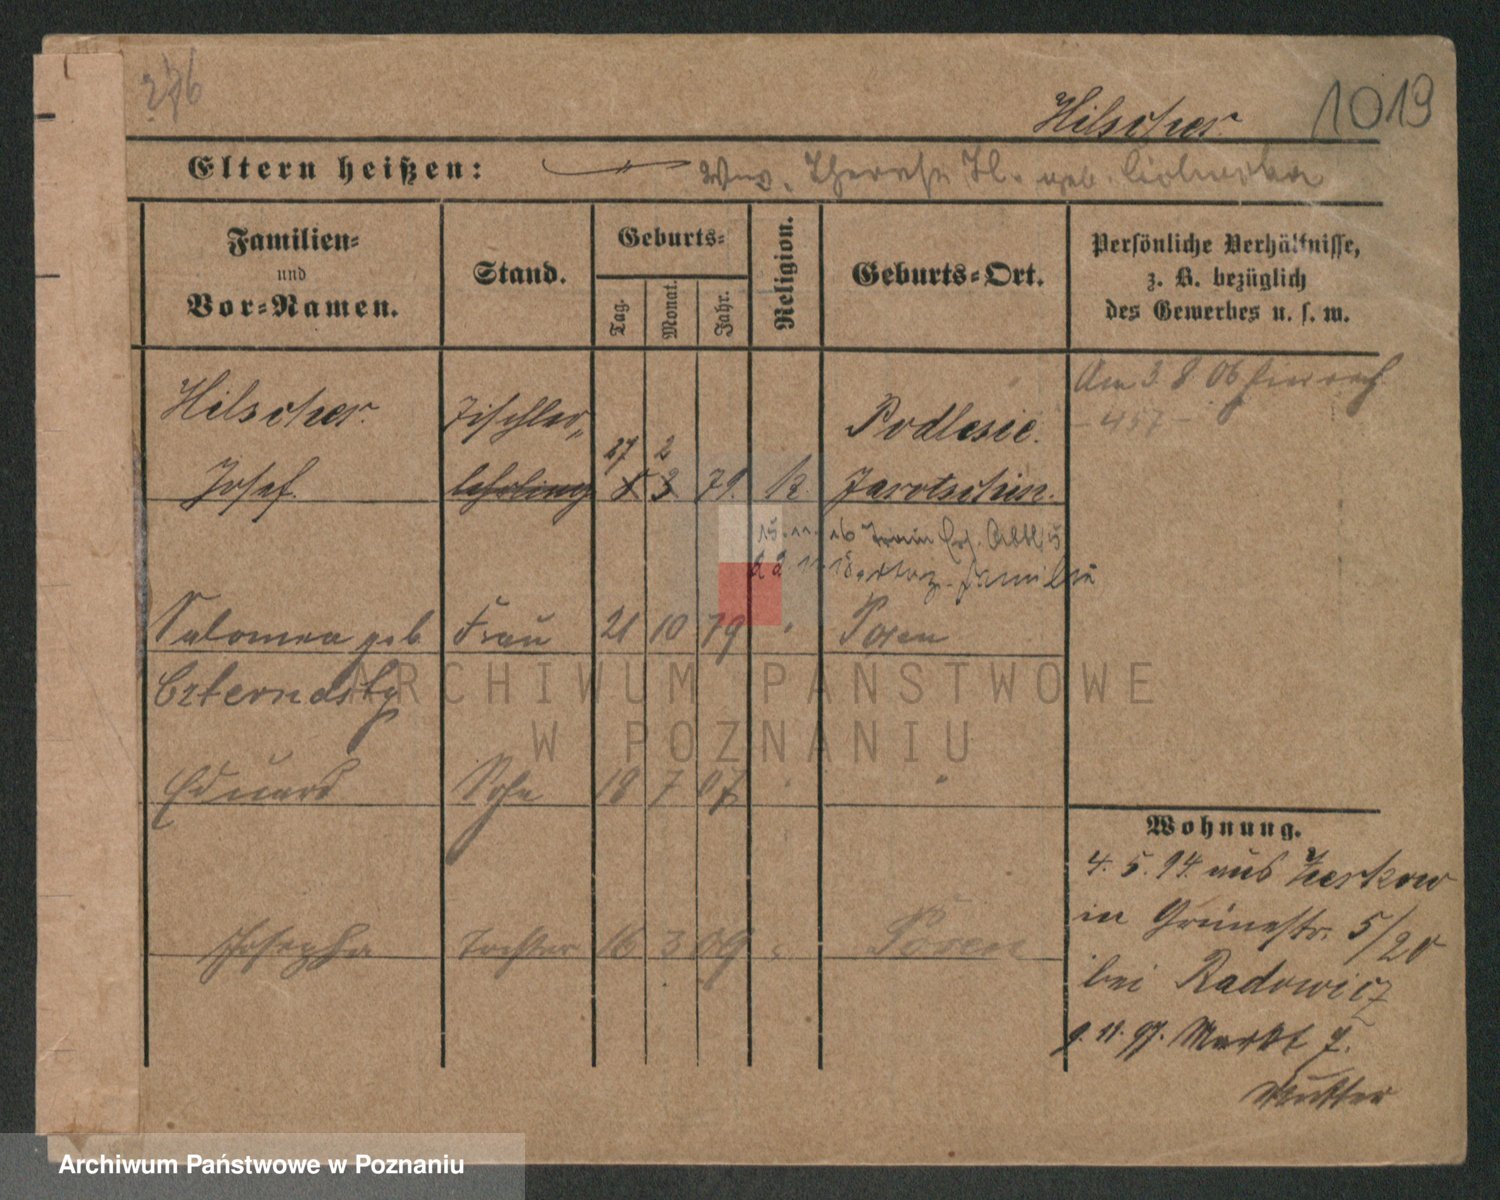 276
1019
Hilscher.
Eltern heißen: Wwe. Therese H. geb.
Familien- und Vor-Namen.
Stand.
Geburts-
Tag.
Monat.
Jahr.
Religion.
Geburts-Ort.
Persönliche Verhältnisse,
z. B. bezüglich
des Gewerbes u. s. w.
Am 3. 8. 06
- 457 -
Hilscher. Tischler, Podlesie.
27 2
Josef. lehrling 3 79. k. Jarotschin.
Salomea geb. Frau 21 10 79 " Posen
Czternasty
Eduard Sohn 18 7 07 " "
Josepha Tochter 16 3 09 " Posen
Wohnung.
4. 5. 94. aus Zerkow
in Grünestr. 5/20
bei Radowicz
9. 11. 97. Markt 7.
Mutter
ARCHIWUM PAŃSTWOWE
W POZNANIU
Archiwum Państwowe w Poznaniu